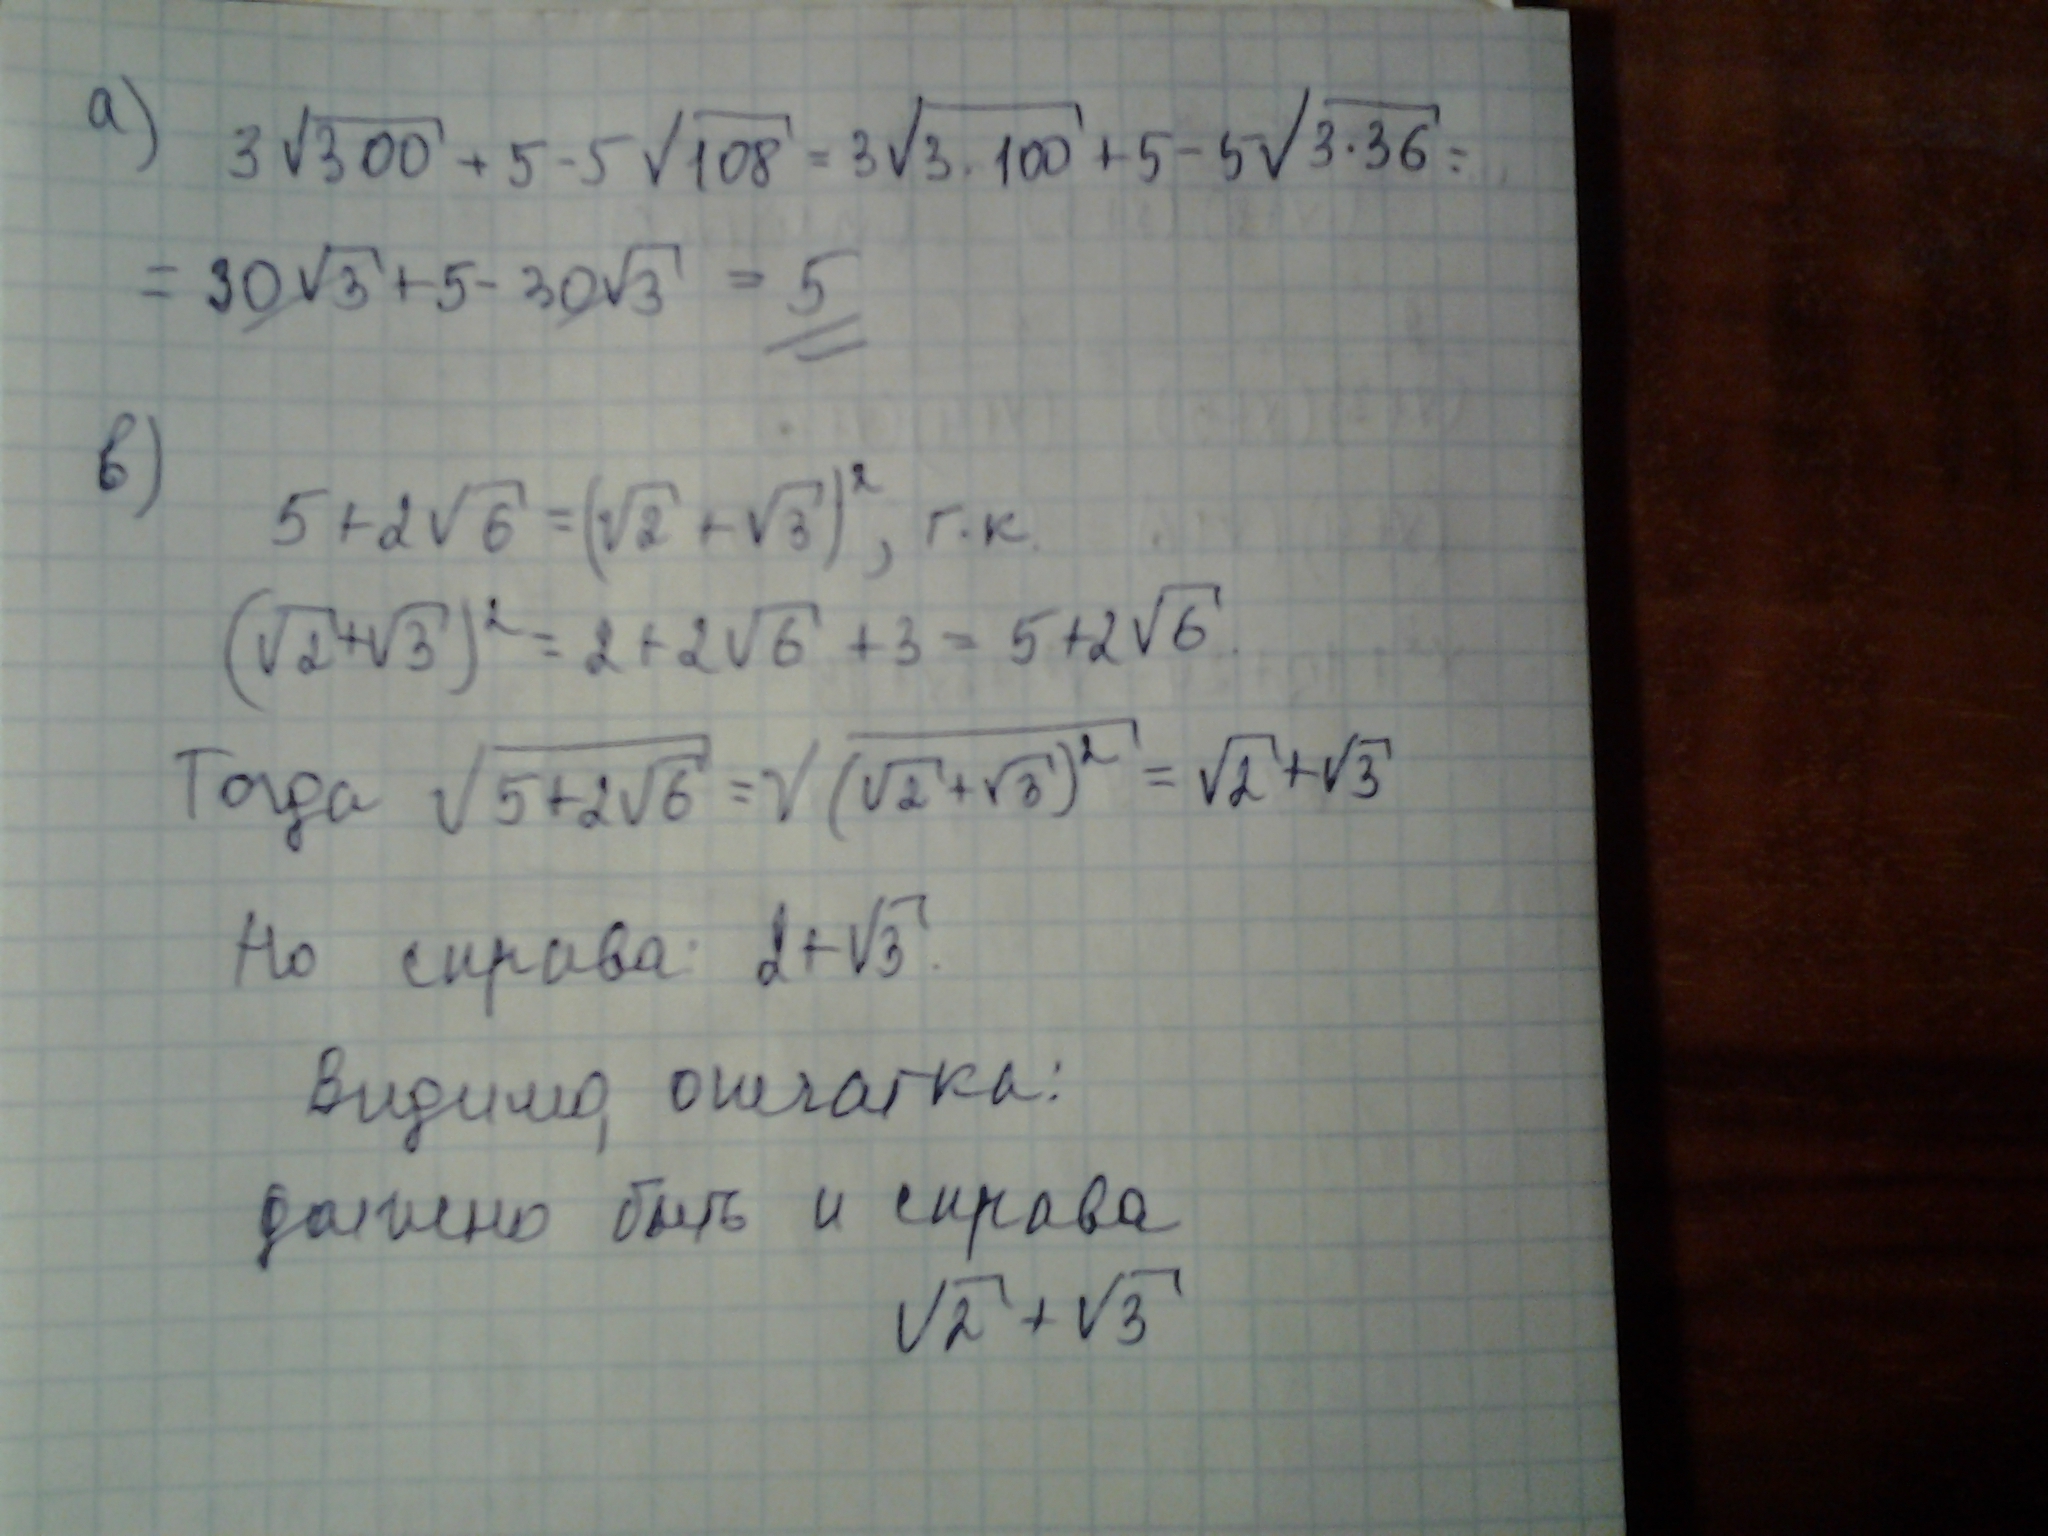 а) 3√300 + 5 - 5√108 = 3√3·100 + 5 - 5√3·36 =
= 30√3 + 5 - 30√3 = 5
в)
5 + 2√6 = (√2 + √3)², т.к.
(√2 + √3)² = 2 + 2√6 + 3 = 5 + 2√6.
Тогда √5 + 2√6 = √(√2 + √3)² = √2 + √3
Но справа: 2 + √3.
Видимо, опечатка:
должно быть и справа
√2 + √3